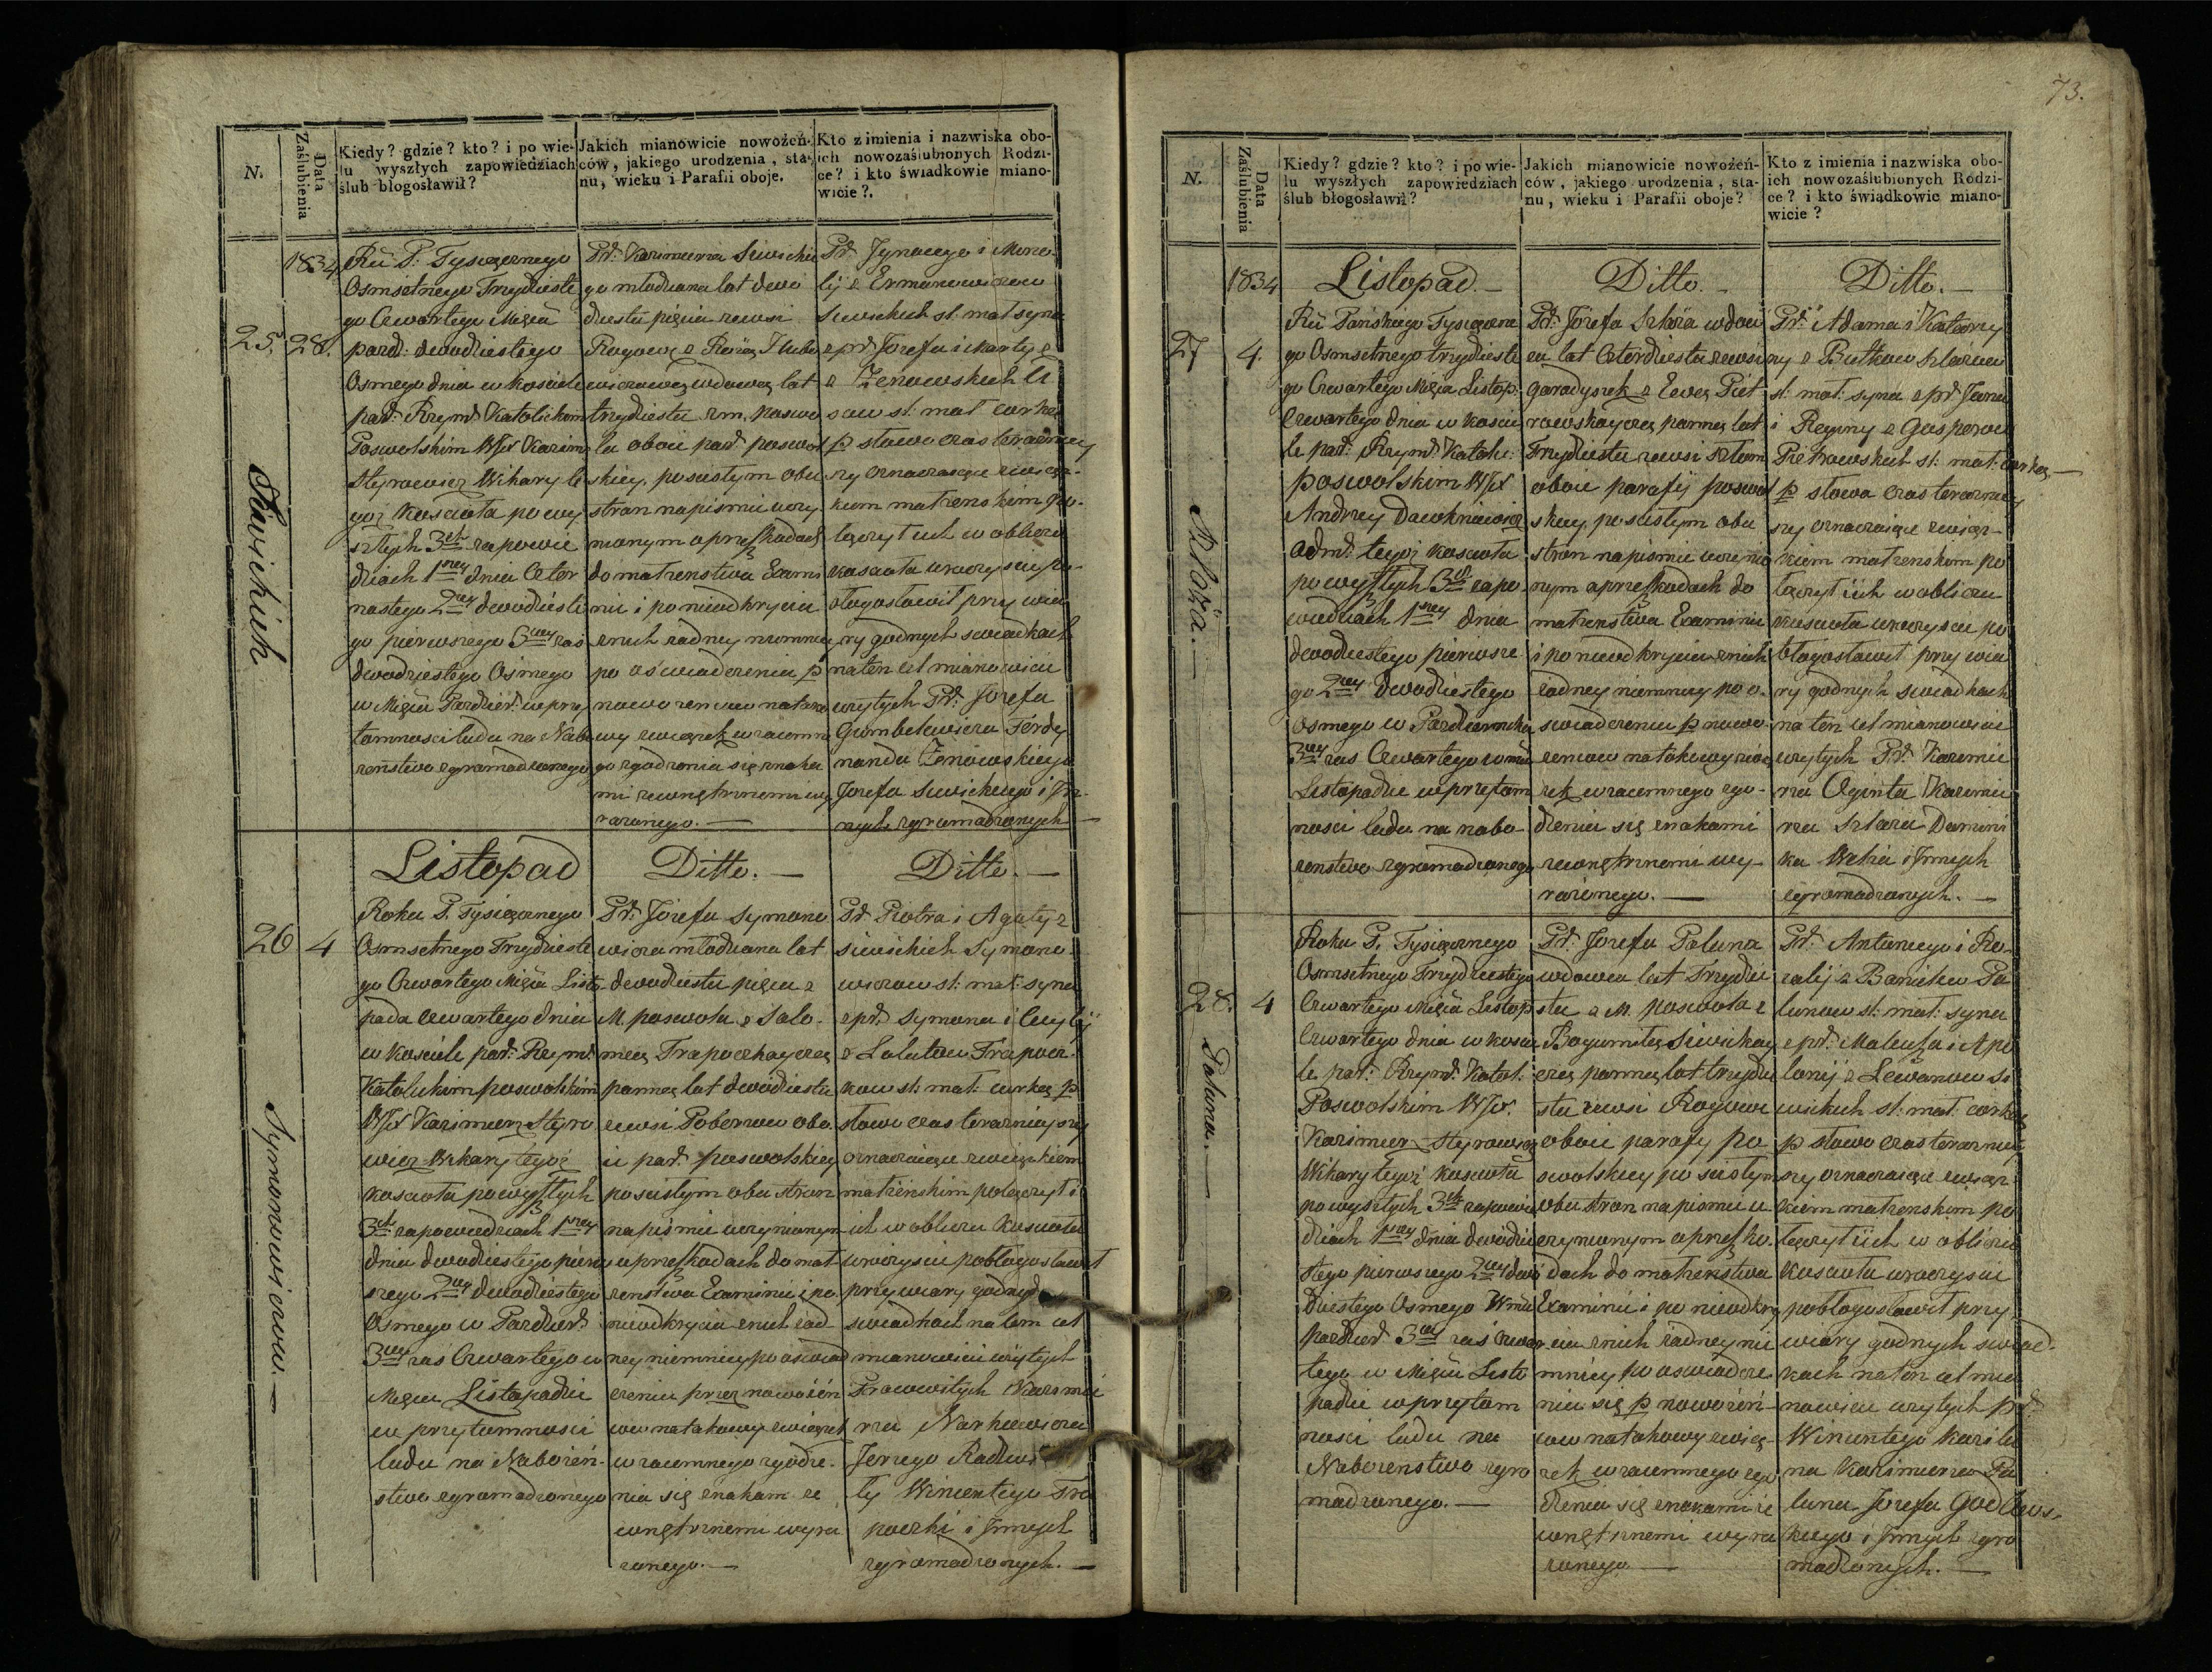 N.
Data
Zaślubienia
Kiedy? gdzie? kto? i po wie-
lu wyszłych zapowiedziach
ślub błogosławił?
Jakich mianowicie nowożeń-
ców, jakiego urodzenia, sta-
nu, wieku i Parafii oboje.
Kto z imienia i nazwiska obo-
ich nowozaślubionych Rodzi-
ce? i kto świadkowie miano-
wicie?.
1834
25.
28.
Siwickich
Ru P. Tysiącznego
Osmsetnego Trzydzieste
go Czwartego Mięsia
pazd: dwudziestego
Osmego dnia w kosciele
par: Rzym: Katolickim
Poswolskim WJX Kazim
Styrowicz Wikary te
goż koscioła po wy
szłych 3ch zapowie
dziach 1szey dnia Czter
nastego 2ey dwudzieste
go pierwszego 3ciey zas
dwudziestego Osmego
w Mięsiu Pazdzier: w przy
tomnosci ludu na Nabo
żeństwo zgromadzonego
Pr: Kazimierza Siwickie
go młodziana lat dwu
dziestu pięciu zewsi
Rogową z Rożą
wdową lat
trzydziestu
oboie par: poswol
skiey, po scisłym obu
stron na pismie uczy
nionym o przeszkodach
do małżenstwa Exami
nie i po nieodkryciu
żadney niemniey
po oświadczeniu p
nowożencow na tako
wy związek wzaiemne
go zgodzenia się znaka
mi zewnętrznemi wy
rażonego. —
Pr: Jgnacego i
Siwickich sl: mał: syna
z pr: Jozefa i Marty
z Zenowskich
sl: mał: corkę
p słowa czas terazniey
szy oznaczaiące związ-
kiem małżenskim po-
łączył ich w obliczu
koscioła uroczyscie po-
błogosławił przy wia
ry godnych swiadkach
na ten cel mianowicie
wzytych Pr: Jozefa
Gumbelewicza Ferdy
nanda Zenowskiego
Jozefa Siwickiego i Jn-
nych zgromadzonych —
Listopad
Ditto. —
Ditto. —
26
4
Symonowiczow. —
Roku P. Tysiącznego
Osmsetnego Trzydzieste
go Czwartego Mięsia Listo-
pada czwartego dnia
w kosciele par: Rzym:
Katolickim poswolskim
WJX Kazimierz Styro
wicz Wikary tegoż
kosciola po wyszłych
3ch zapowiedziach 1szey
dnia dwudziestego pierw
szego 2ey dwudziestego
Osmego w Pazdzier:
3ciey zas Czwartego w
Mięsiu Listopadzie
w przytomnosci
ludu na Nabożeń-
stwo zgromadzonego
Pr: Jozefa Symono
wicza młodziana lat
dwudziestu pięciu z
M. poswola z Salo-
meą Trapoczkayczą
panną lat dwudziestu
zewsi oboi
e par: poswolskiey
po scisłym obu stron
na pismie uczynionym
o przeszkodach do mał
żenstwa Examinie i po
nieodkryciu znich żad
ney niemniey po oswiad
czeniu przez nowożen
cow na takowy związek
wzaiemnego zgodze-
nia się znakami ze
wnętrznemi wyra
żonego. —
Pr: Piotra i Agaty z
Siwickich Symono-
wiczow sl: mał: syna
z pr. Symona i Cecylij
z Trapocz-
kow sl: mał: corkę p
słowa czas teraznieyszy
oznaczaiące związkiem
małżenskim połączył i
ich w obliczu kosciola
uroczyscie pobłogosławił
przy wiary godnych
swiadkach na ten cel
mianowicie wzytych
Prawowitych Kazimie
rza Narkiewicza
Jerzego
Wincentego Tra
poczki i Jnnych
zgromadzonych. —
73.
N.
Data
Zaślubienia
Kiedy? gdzie? kto? i po wie-
lu wyszłych zapowiedziach
ślub błogosławił?
Jakich mianowicie nowożeń-
ców, jakiego urodzenia, sta-
nu, wieku i Parafii oboje?
Kto z imienia i nazwiska obo-
ich nowozaślubionych Rodzi-
ce? i kto świadkowie miano-
wicie?
1834
Listopad. —
Ditto. —
Ditto. —
27
4.
Szłaża. —
Ru Pańskiego Tysiączne
go Osmsetnego trzydzieste
go Czwartego Mięsia Listop:
Czwartego dnia w koscie
le par: Rzym: Katoli:
poswolskim WJX
Andrzey Dawkniewicz
adm: tegoż kosciola
po wyszłych 3ch zapo
wiedziach 1szey dnia
dwudziestego pierwsze
go 2ey dwudziestego
Osmego w Pazdzierniku
3ciey zas Czwartego w
Listopadzie w przytom
nosci ludu na nabo
żenstwo zgromadzonego
Pr: Jozefa Szłaża wdow
ca lat Czterdziestu zewsi
z Ewą Piet
rowskayczą panną lat
Trzydziestu zewsi
oboie parafij poswol
skiey, po scisłym obu
stron na pismie uczynio
nym o przeszkodach do
małżenstwa Examinie
i po nieodkryciu znich
żadney niemniey po o-
swiadczeniu p nowo-
żencow na takowy zwią
zek wzaiemnego zgo-
dzenia się znakami
zewnętrznemi wy-
rażonego. —
Pr: Adama i Katarzy
ny z Butkow Szłażow
sl: mał: syna z pr: Jana
i Reginy z
Pietrowskich sl: mał: corką —
p słowa czas teraznieyszy
oznaczaiące związ-
kiem małżenskim po
łączył iich w obliczu
kosciola uroczyscie po
błogosławił przy wia
ry godnych swiadkach
na ten cel mianowicie
wzytych Pr: Kazimie
rza Oginta Kazimie
rza Szłaża Domini
ka i Jnnych
zgromadzonych. —
28.
4
Paluna. —
Roku P. Tysiącznego
Osmsetnego Trzydziestego
Czwartego Mięsia Listop:
Czwartego dnia w koscie
le par: Rzym: Katol:
Poswolskim WJX.
Kazimierz Styrowicz
Wikary tegoż kosciola
po wyszłych 3ch zapowie
dziach 1szey dnia dwudzie
stego pierwszego 2ey dwu
dziestego Osmego
pazdzier: 3ciey zaś czwar
tego w Mięsiu Listo
padzie w przytom
nosci ludu na
Nabożenstwo zgro
madzonego. —
Pr: Jozefa Paluna
wdowca lat Trzydzie
stu z M. poswola z
Bogumiłą Siwickay
czą panną lat trzydzie
stu zewsi Rogowe
oboie parafy po
swolskiey po scisłym
obu stron na pismie u
czynionym o przeszko-
dach do małżenstwa
Examinie i po nieodkry
ciu znich żadney nie
mniey po oswiadcze
niu się p nowożeń-
cow na takowy zwią-
zek wzaiemnego zgo
dzenia się znakami ze
wnętrznemi wyra
żonego —
Pr: Antoniego i Ro-
zalij z Pa
lunow sl: mał: syna
z pr: Mateusza i Apo
lonij z Si
wickich sl: mał: corką
p słowa czas terazniey
szy oznaczaiące związ-
kiem małżenskim po
łączył iich w obliczu
kosciola uroczyscie
pobłogosławił przy
wiary godnych swiad-
kach na ten cel mia
nowicie wzytych pr:
Wincentego
na Kazimierza Pa
luna Jozefa Godlews-
kiego i Jnnych zgro
madzonych. —